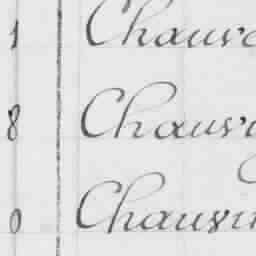 1 Chauv
8 Chauvi
0 Chauvin